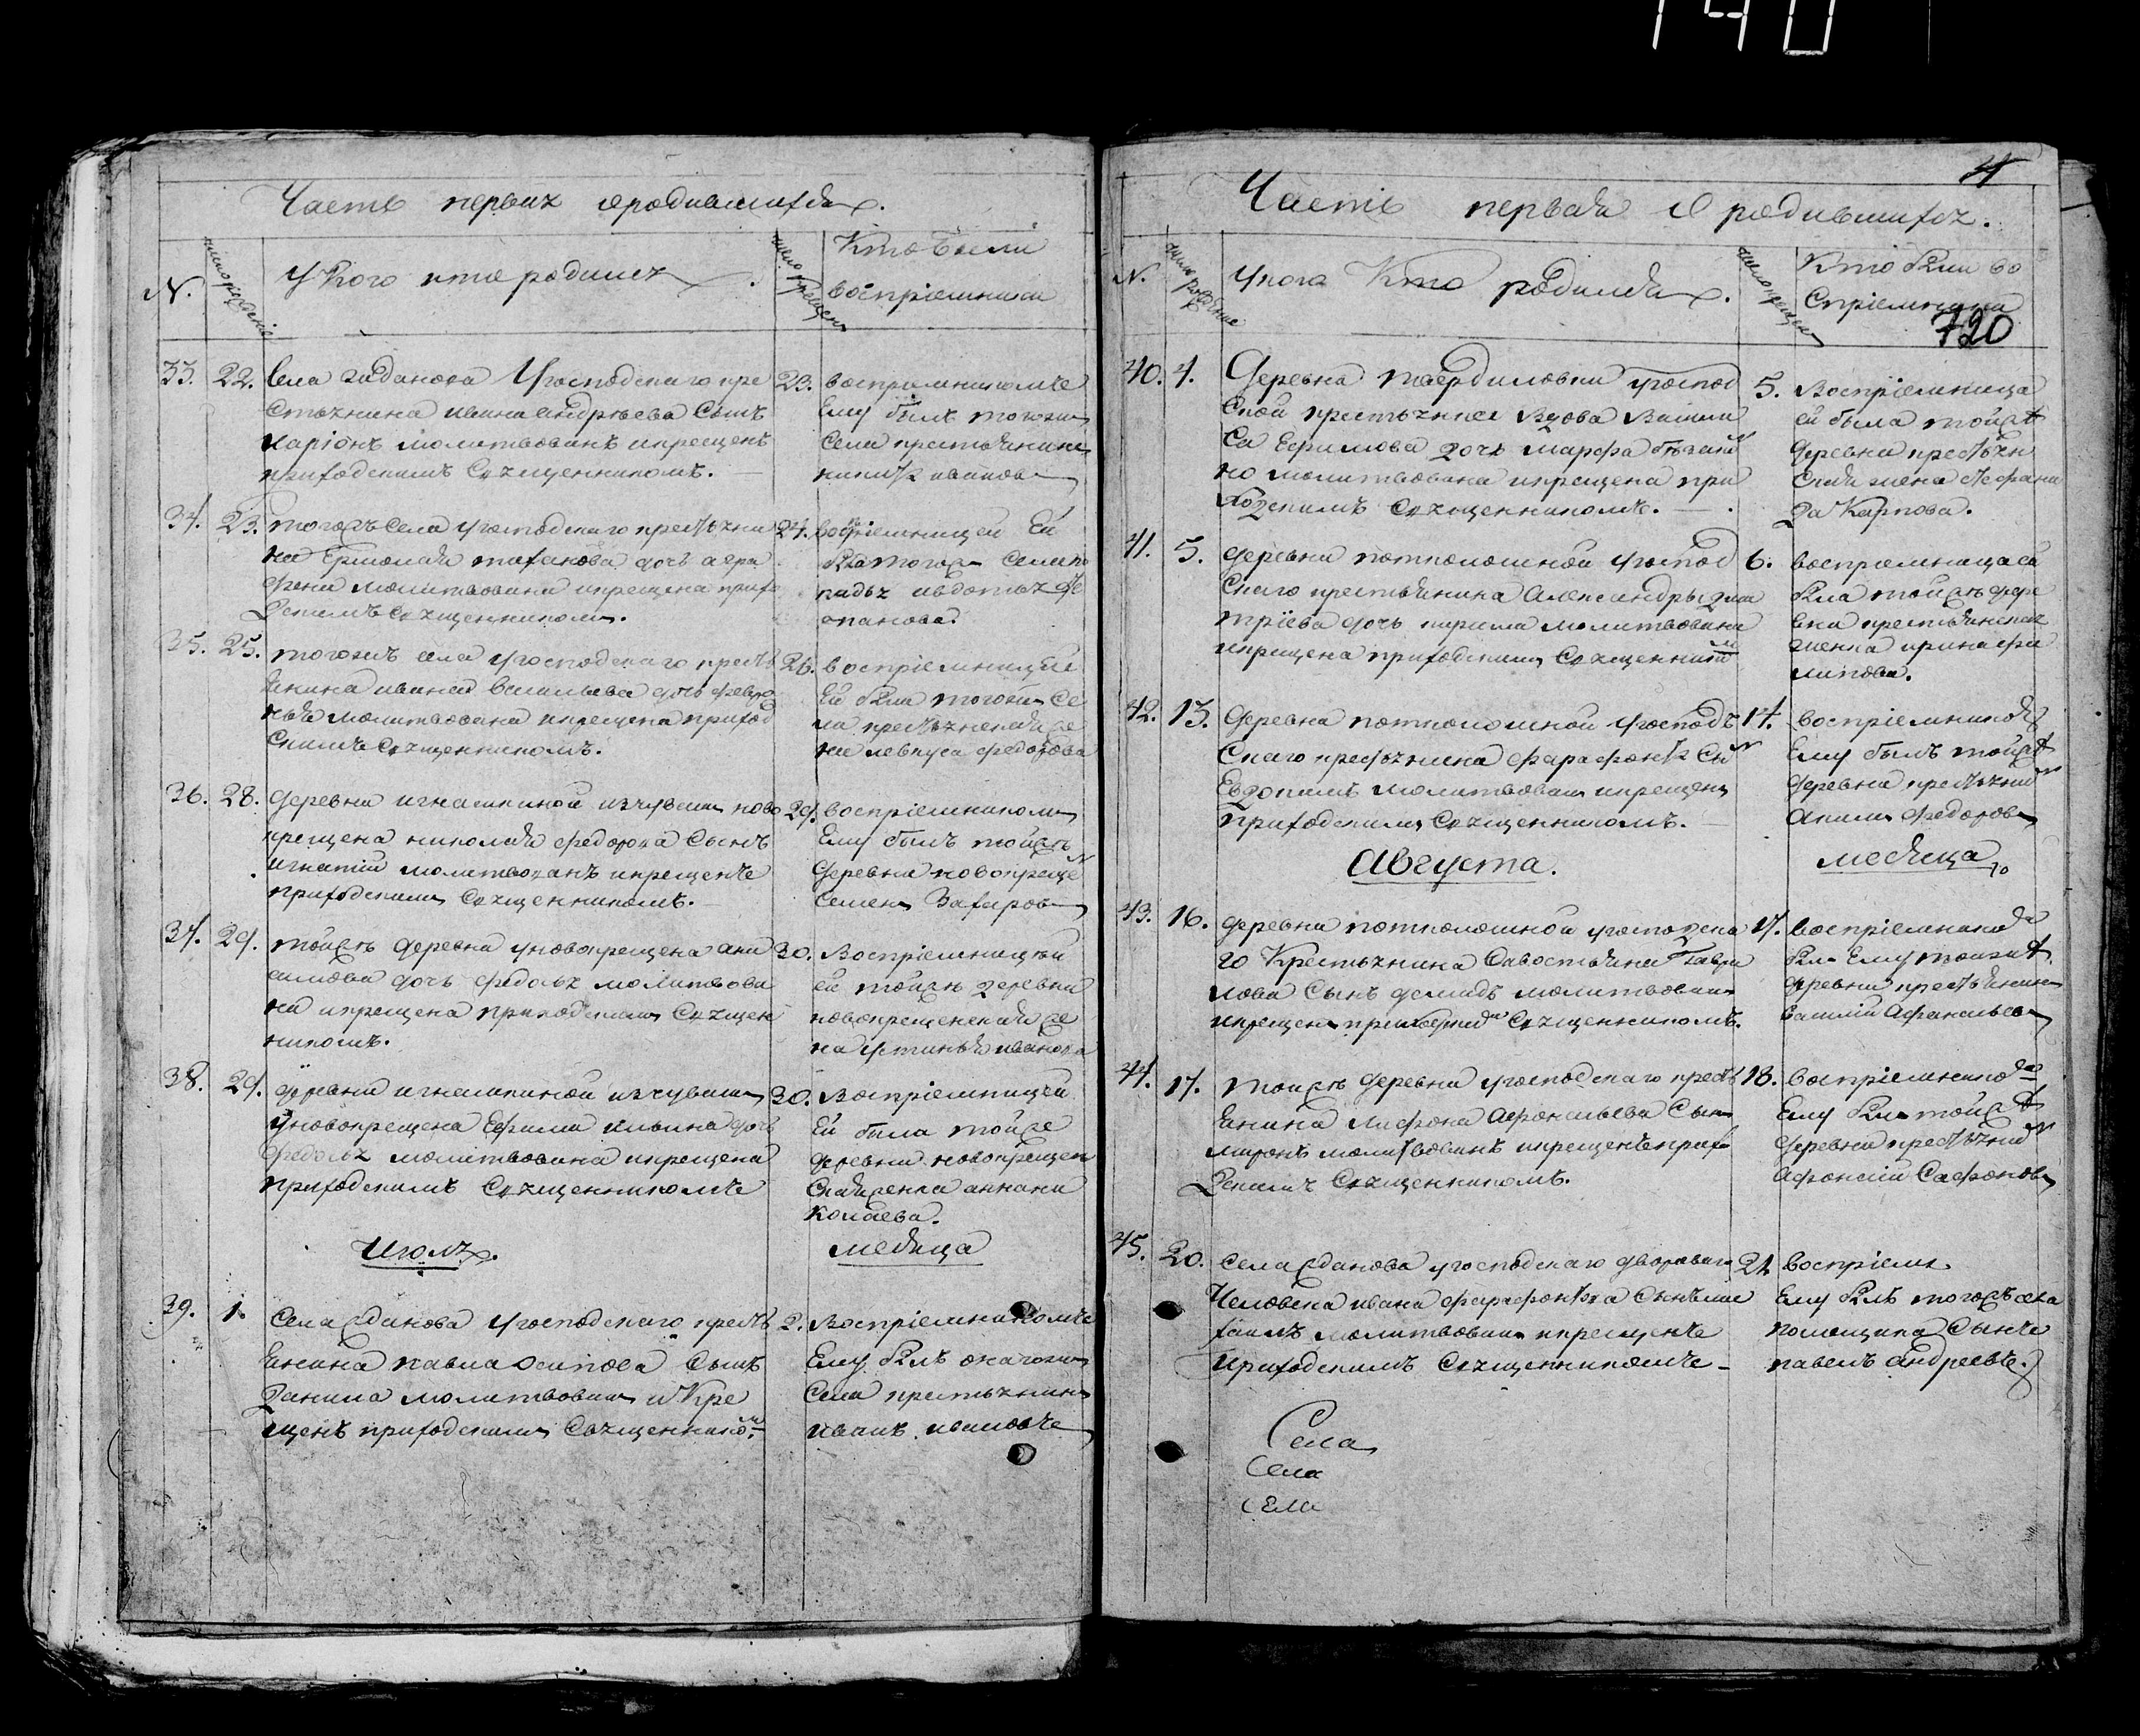 140
Часть первая о родившихся.
N.
число рождения
У кого кто родился
число крещен
Кто были
восприемники
33. 22. Села жданова У господскаго кре
стьянина ивана андреева Сынъ
иларіонъ молитвованъ икрещенъ
приходскимъ Священникомъ.
23. восприемникомъ
Ему былъ тогожъ
Села крестьянинъ
никита ивановъ
34. 23. тогожъ Села у господскаго крестьяни
на Ермолая дочь агра
фена молитвована икрещена прихо
дскимъ Священникомъ.
24. воспріемницей Ей
была тогожъ Села по
падья авдотья Сте
панова.
35. 25. тогожъ села у господскаго кресть
янина ивана Васильева дочь февро
нья молитвована икрещена приход
скимъ Священникомъ.
26. воспріемницей
Ей была тогожъ Се
ла крестьянская же
на федорова
36. 28. деревни игнашкиной изчувашъ ново
крещена николая федорова Сынъ
игнатій молитвованъ икрещенъ
приходскимъ Священникомъ.
29. воспріемникомъ
Ему былъ тойжъ
деревни новокреще
Семенъ Захаровъ
37. 29. тойжъ деревни уновокрещена ани
симова дочь федосья молитвова
на икрещена приходскимъ Священ
никомъ.
30. Воспріемницей
ей тойжъ деревни
новокрещенская же
на устинья иванова
38. 29. деревни игнашкиной изчувашъ
уновокрещена Ефима ильина дочь
федосья молитвована икрещена
приходскимъ Священникомъ
30. Воспріемницей
Ей была тойже
деревни новокрещен
Ская женка анна ни
колаева.
Июля. месяца
39. 1. Села Жданова у господскаго кресть
янина павла осипова Сынъ
Данила молитвованъ и Кре
щенъ приходскимъ Священником
2. Воспріемникомъ
Ему былъ онагожъ
Села крестьянинъ
иванъ ивановъ
4
Часть первая О родившихся.
N.
число рождение
У кого Кто родился.
число крещен
Кто были во
спріемники
720
40. 4. Деревни твердиловки у господ
ской крестьянки Вдова Васили
са Ефимова дочь марфа
но молитвована икрещена при
ходскимъ Священникомъ.
5. Воспріемница
ей была тойже
деревни крестьян
ская жена Стефани
да Карпова.
41. 5. деревни потколошной у господ
скаго крестьянина Александры дми
тріева дочь кирила молитвована
икрещена приходскимъ Священником
6. воспріемница ей
была тойжъ дере
вни крестьянская
женка ирина фи
липова.
42. 13. Деревни потколошной у господъ
скаго крестьянина фарафонта Сы
Евдокимъ молитвованъ икрещенъ
приходскимъ Священникомъ.
14. воспріемникомъ
Ему былъ тойже
деревни крестьянин
акимъ федоровъ
Августа. месяца
43. 16. деревни потколошной у господска
го Крестьянина Савостьяна Гаври
лова Сынъ демидъ молитвованъ
икрещенъ приходским Священникомъ.
17. воспріемником
былъ Ему тоиже
деревни крестьянинъ
Василій Афанасьевъ
44. 17. тоижъ деревни у господскаго кресть
янина Афонасьева Сынъ
миронъ молитвованъ икрещенъ прихо
дскимъ Священникомъ.
18. воспріемником
Ему былъ тойже
деревни крестьянин
Афонасій Сафоновъ
45. 20. села Жданова у господскаго двороваго
Человека ивана фарафонтова Сынъ ми
хаилъ молитвованъ икрещенъ
приходскимъ Священникомъ
21. воспріем.
Ему былъ тогожъ села
помещика Сынъ
павелъ андреевъ.
Села
Села
Села